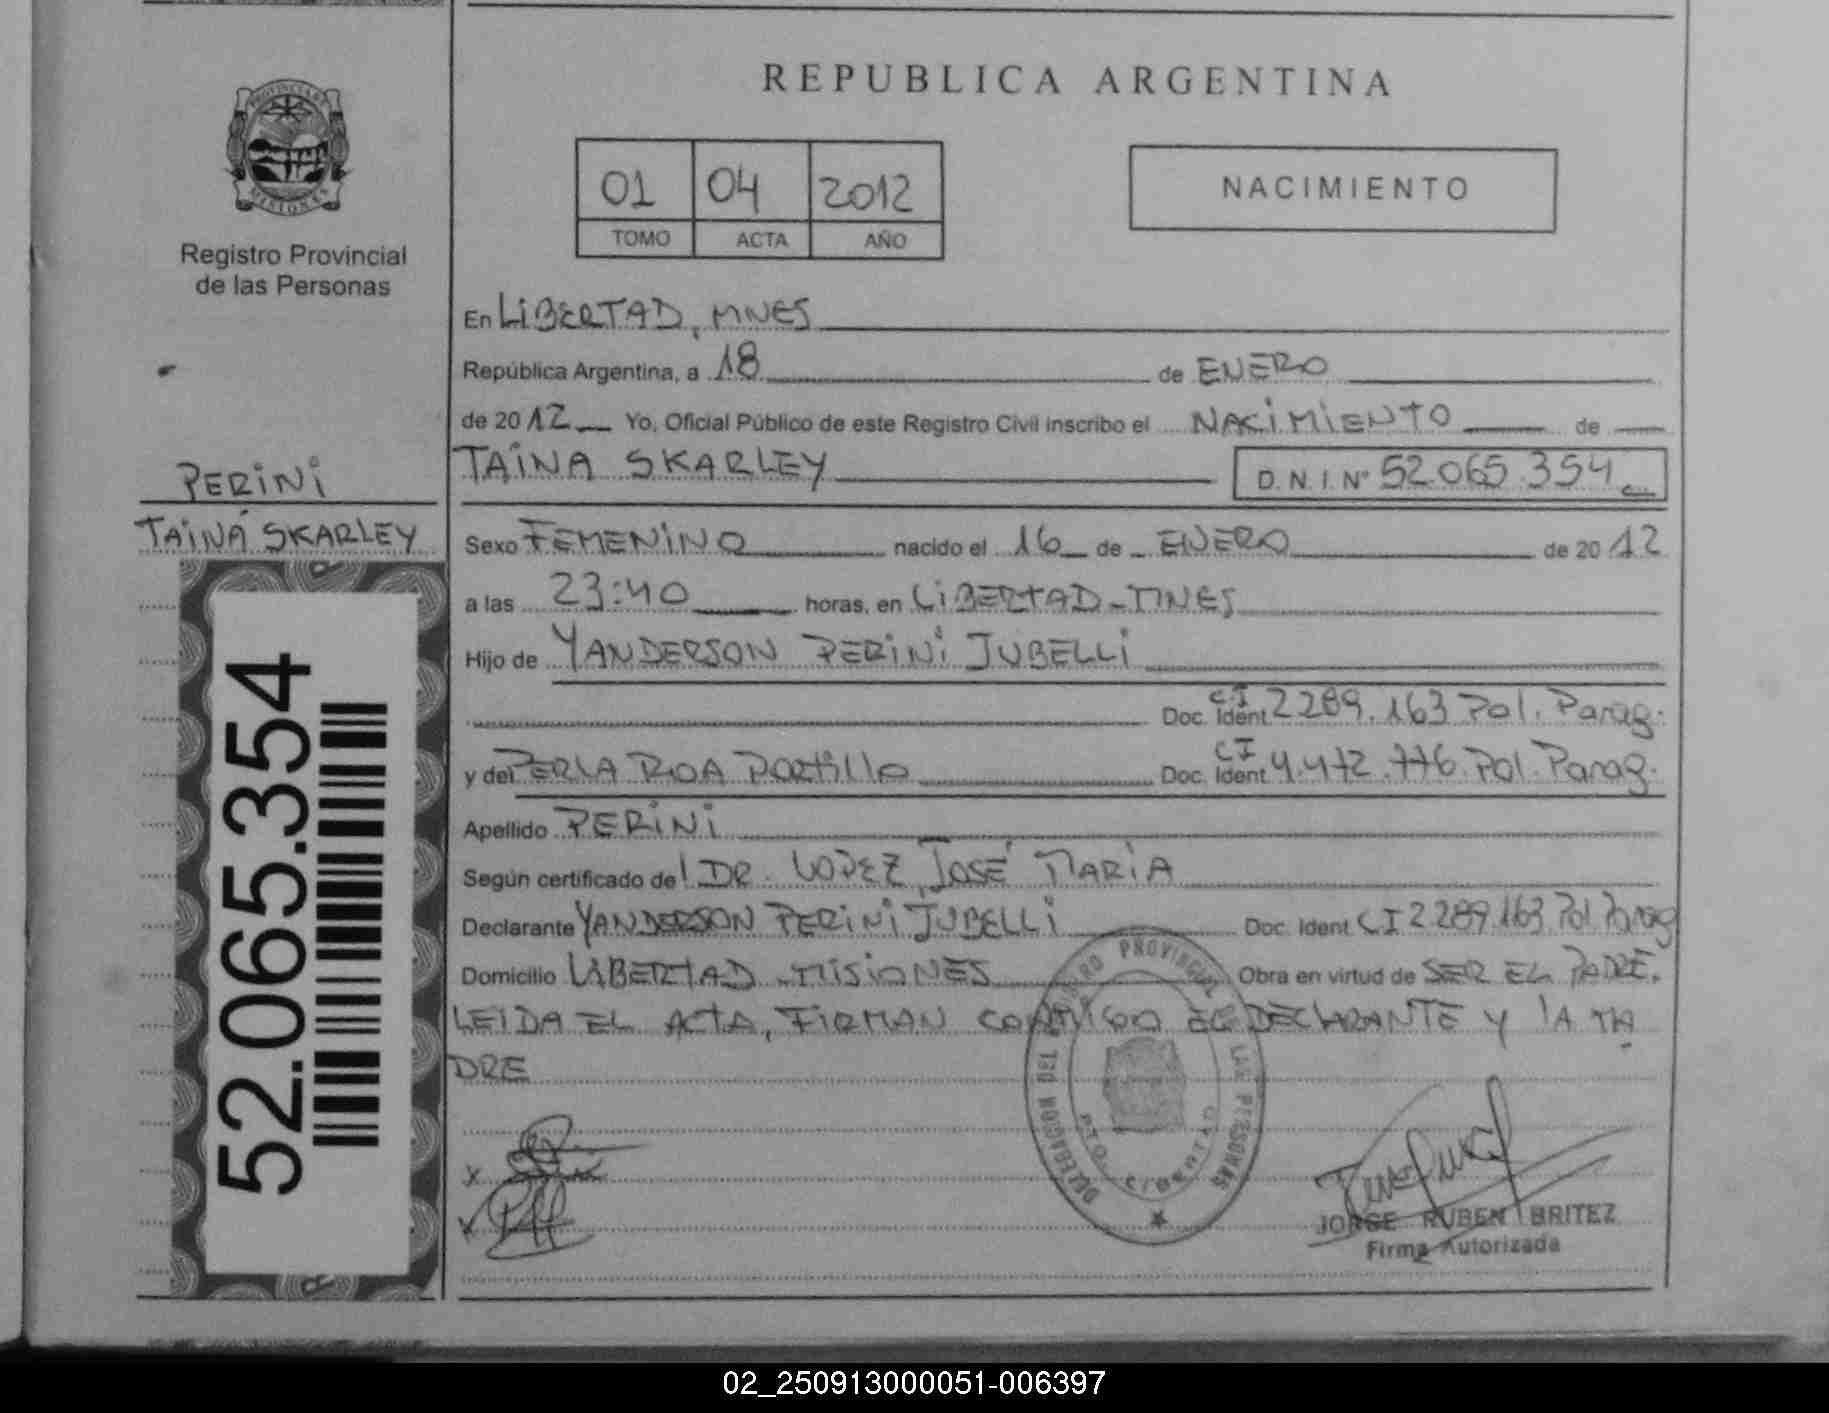 REPUBLICA ARGENTINA
PROVINCIA DE
MISIONES
Registro Provincial
de las Personas
01 04 2012
TOMO ACTA AÑO
NACIMIENTO
En LIBERTAD, MNES
República Argentina, a 18 de ENERO
de 2012 Yo, Oficial Público de este Registro Civil inscribo el NACIMIENTO de
TAINA SKARLEY D.N.I. Nº 52.065.354
PERINI
TAINA SKARLEY
Sexo FEMENINO nacido el 16 de ENERO de 2012
a las 23:40 horas, en LIBERTAD - MNES
Hijo de YANDERSON PERINI JUBELLI
Doc. Ident CI 2289.163 Pol. Parag.
y de PERLA ROA PORTILLO Doc. Ident CI 4.472.776. Pol. Parag.
Apellido PERINI
Según certificado del DR. LOPEZ, JOSÉ MARIA
Declarante YANDERSON PERINI JUBELLI Doc. Ident CI 2.289.163 Pol Parag
Domicilio LIBERTAD - MISIONES Obra en virtud de SER EL PADRE.
LEIDA EL ACTA, FIRMAN CONMIGO EL DECLARANTE Y LA MA
DRE
52.065.354
DELEGACION DEL REGISTRO PROVINCIAL DE LAS PERSONAS
PTO. LIBERTAD
X
X
JORGE RUBEN BRITEZ
Firma Autorizada
02_250913000051-006397